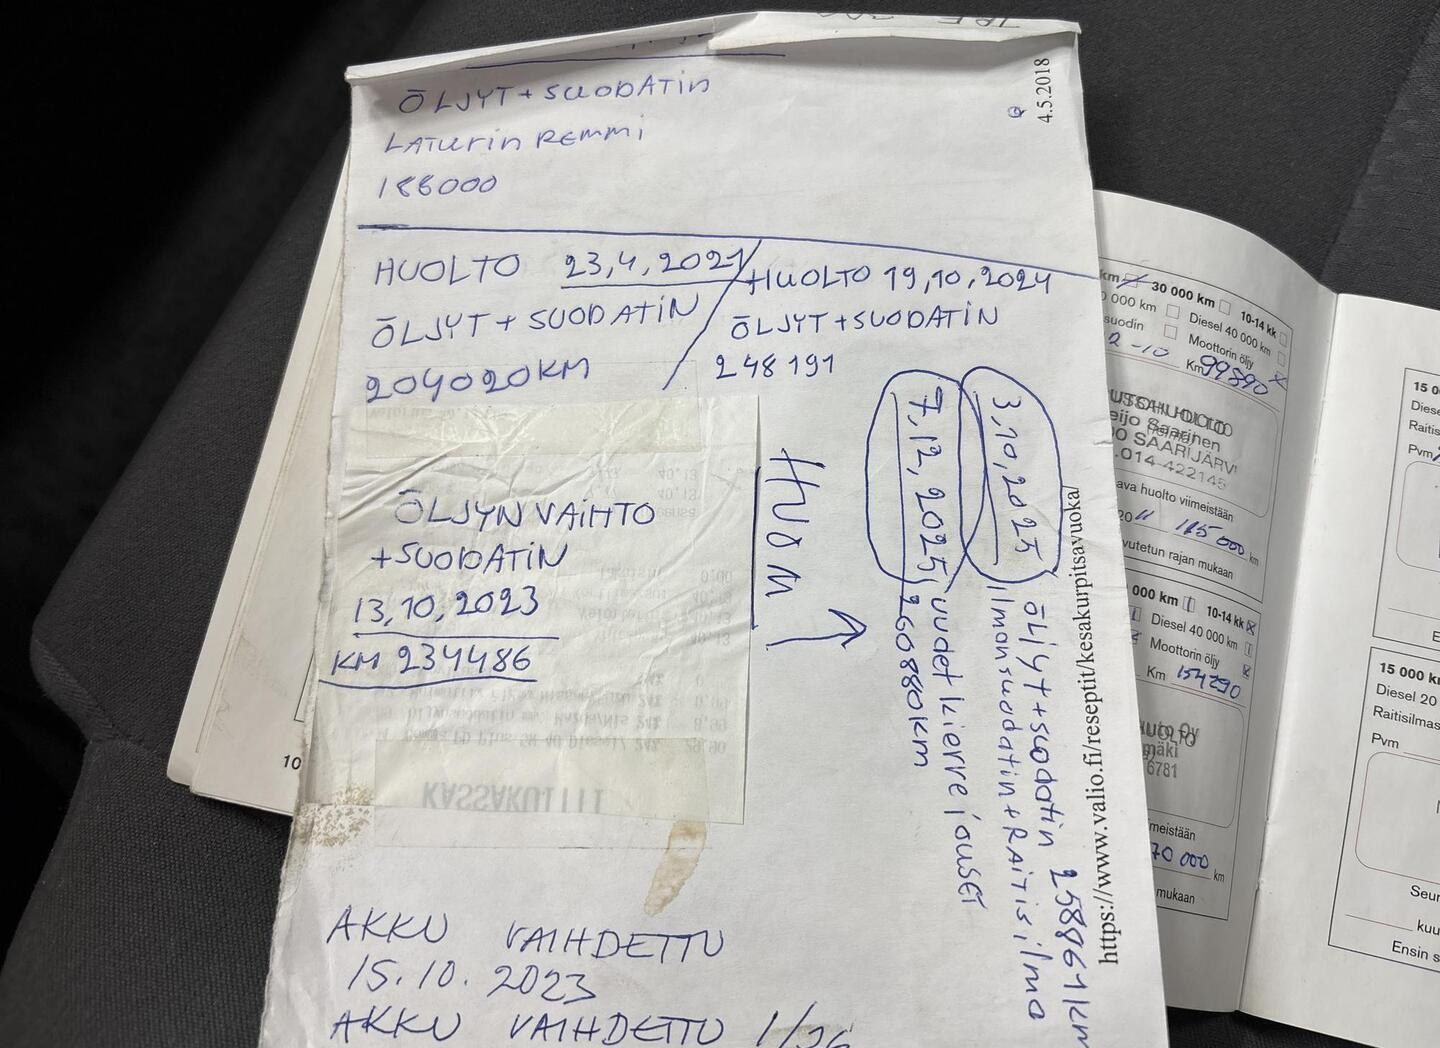 ÖLJYT + SUODATIN
LATURIN REMMI
186000
HUOLTO 23,4,2021
ÖLJYT + SUODATIN
204020 KM
HUOLTO 19,10,2024
ÖLJYT + SUODATIN
248191
ÖLJYN VAIHTO
+SUODATIN
13,10,2023
KM 234486
KASSAKUITTI
AKKU VAIHDETTU
15.10.2023
AKKU VAIHDETTU 1/26
HUOM
3,10,2025 ÖLJYT + suodatin 258861 km
ilmansuodatin + RAitisilma
7,12,2025, uudet kierrejouset
260880 km
4.5.2018
https://www.valio.fi/reseptit/kesakurpitsavuoka/
km 30 000 km 10-14 kk
000 km Diesel 40 000 km
suodin Moottorin öljy
2-10 Km 99390
USSAHUOLTO
eijo Saarinen
00 SAARIJÄRVI
.014-422145
ava huolto viimeistään
20 11 km
vutetun rajan mukaan
000 km 10-14 kk
Diesel 40 000 km
Moottorin öljy
Km 154290
uto Oy
mäki
6781
meistään
70 000 km
mukaan
10
15 0
Diese
Raitis
Pvm
15 000 k
Diesel 20
Raitisilmas
Pvm
Seur
kuu
Ensin s